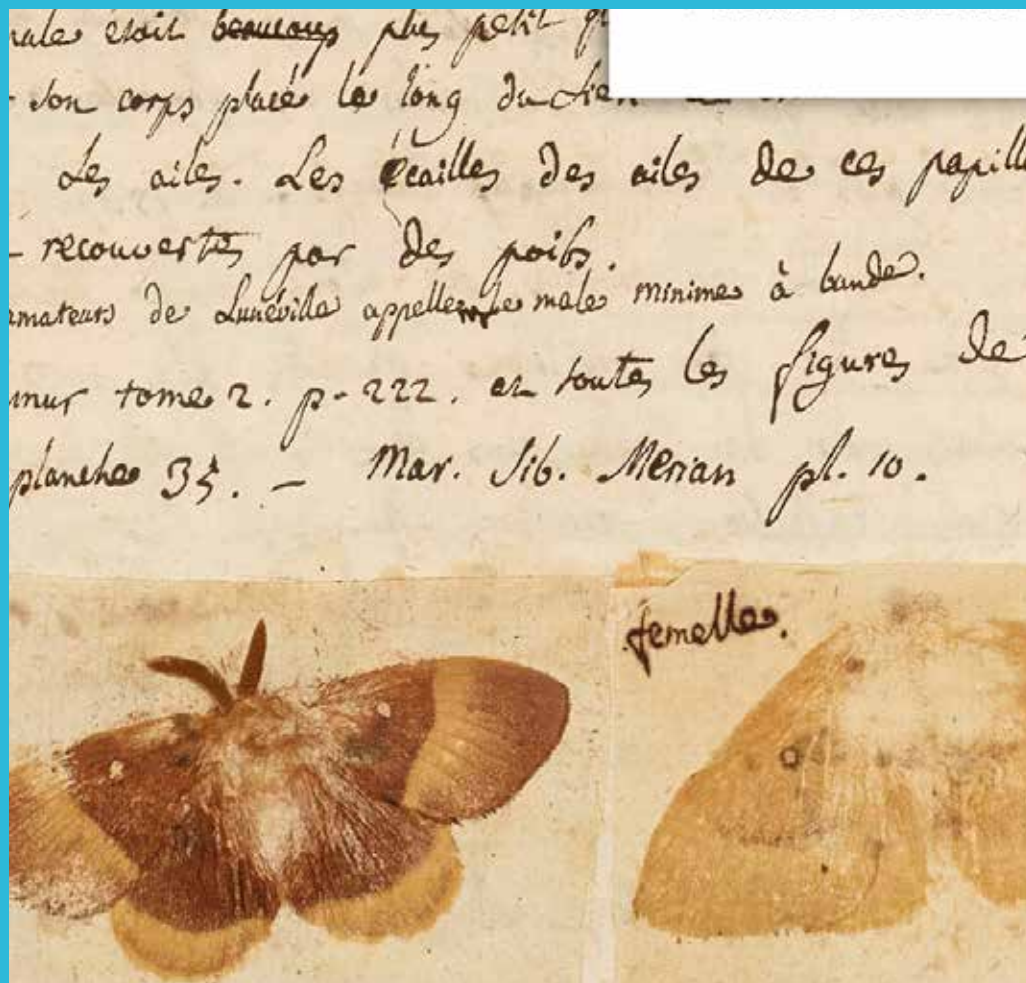 male étoit beaucoup plus petit
son corps placé le long du sien
les ailes. Les écailles des ailes de ces papill
recouvertes par des poils.
amateurs de Lunéville appellent le male minime à bande.
mur tome 2. p. 222. et toutes les figures de
planche 35. – Mar. Sib. Merian pl. 10.
femelle.